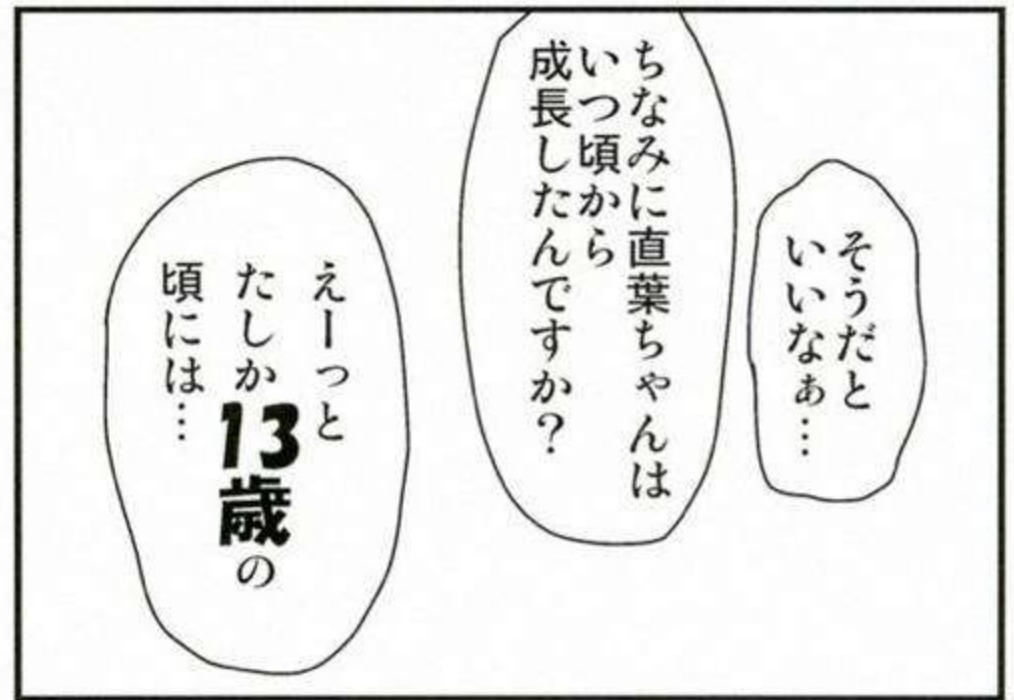 そうだと
いいなぁ…
ちなみに直葉ちゃんは
いつ頃から
成長したんですか？
えーっと
たしか13歳の
頃には…